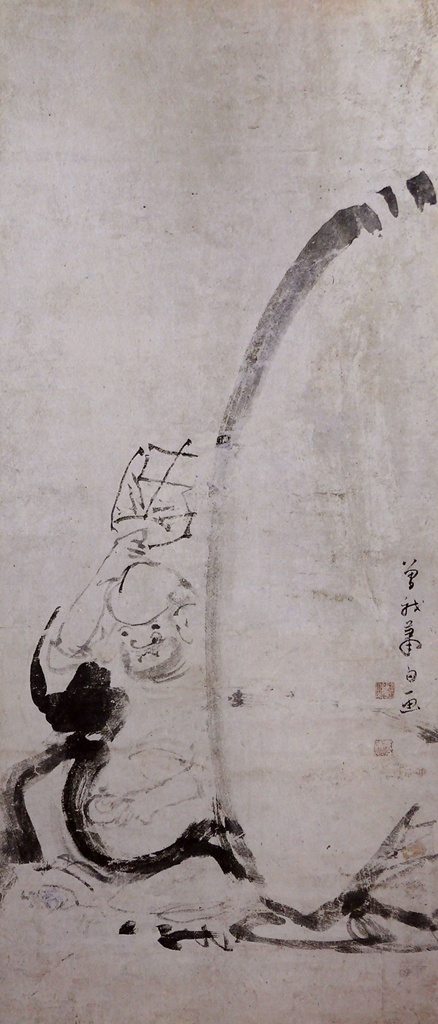 曽我蕭白画